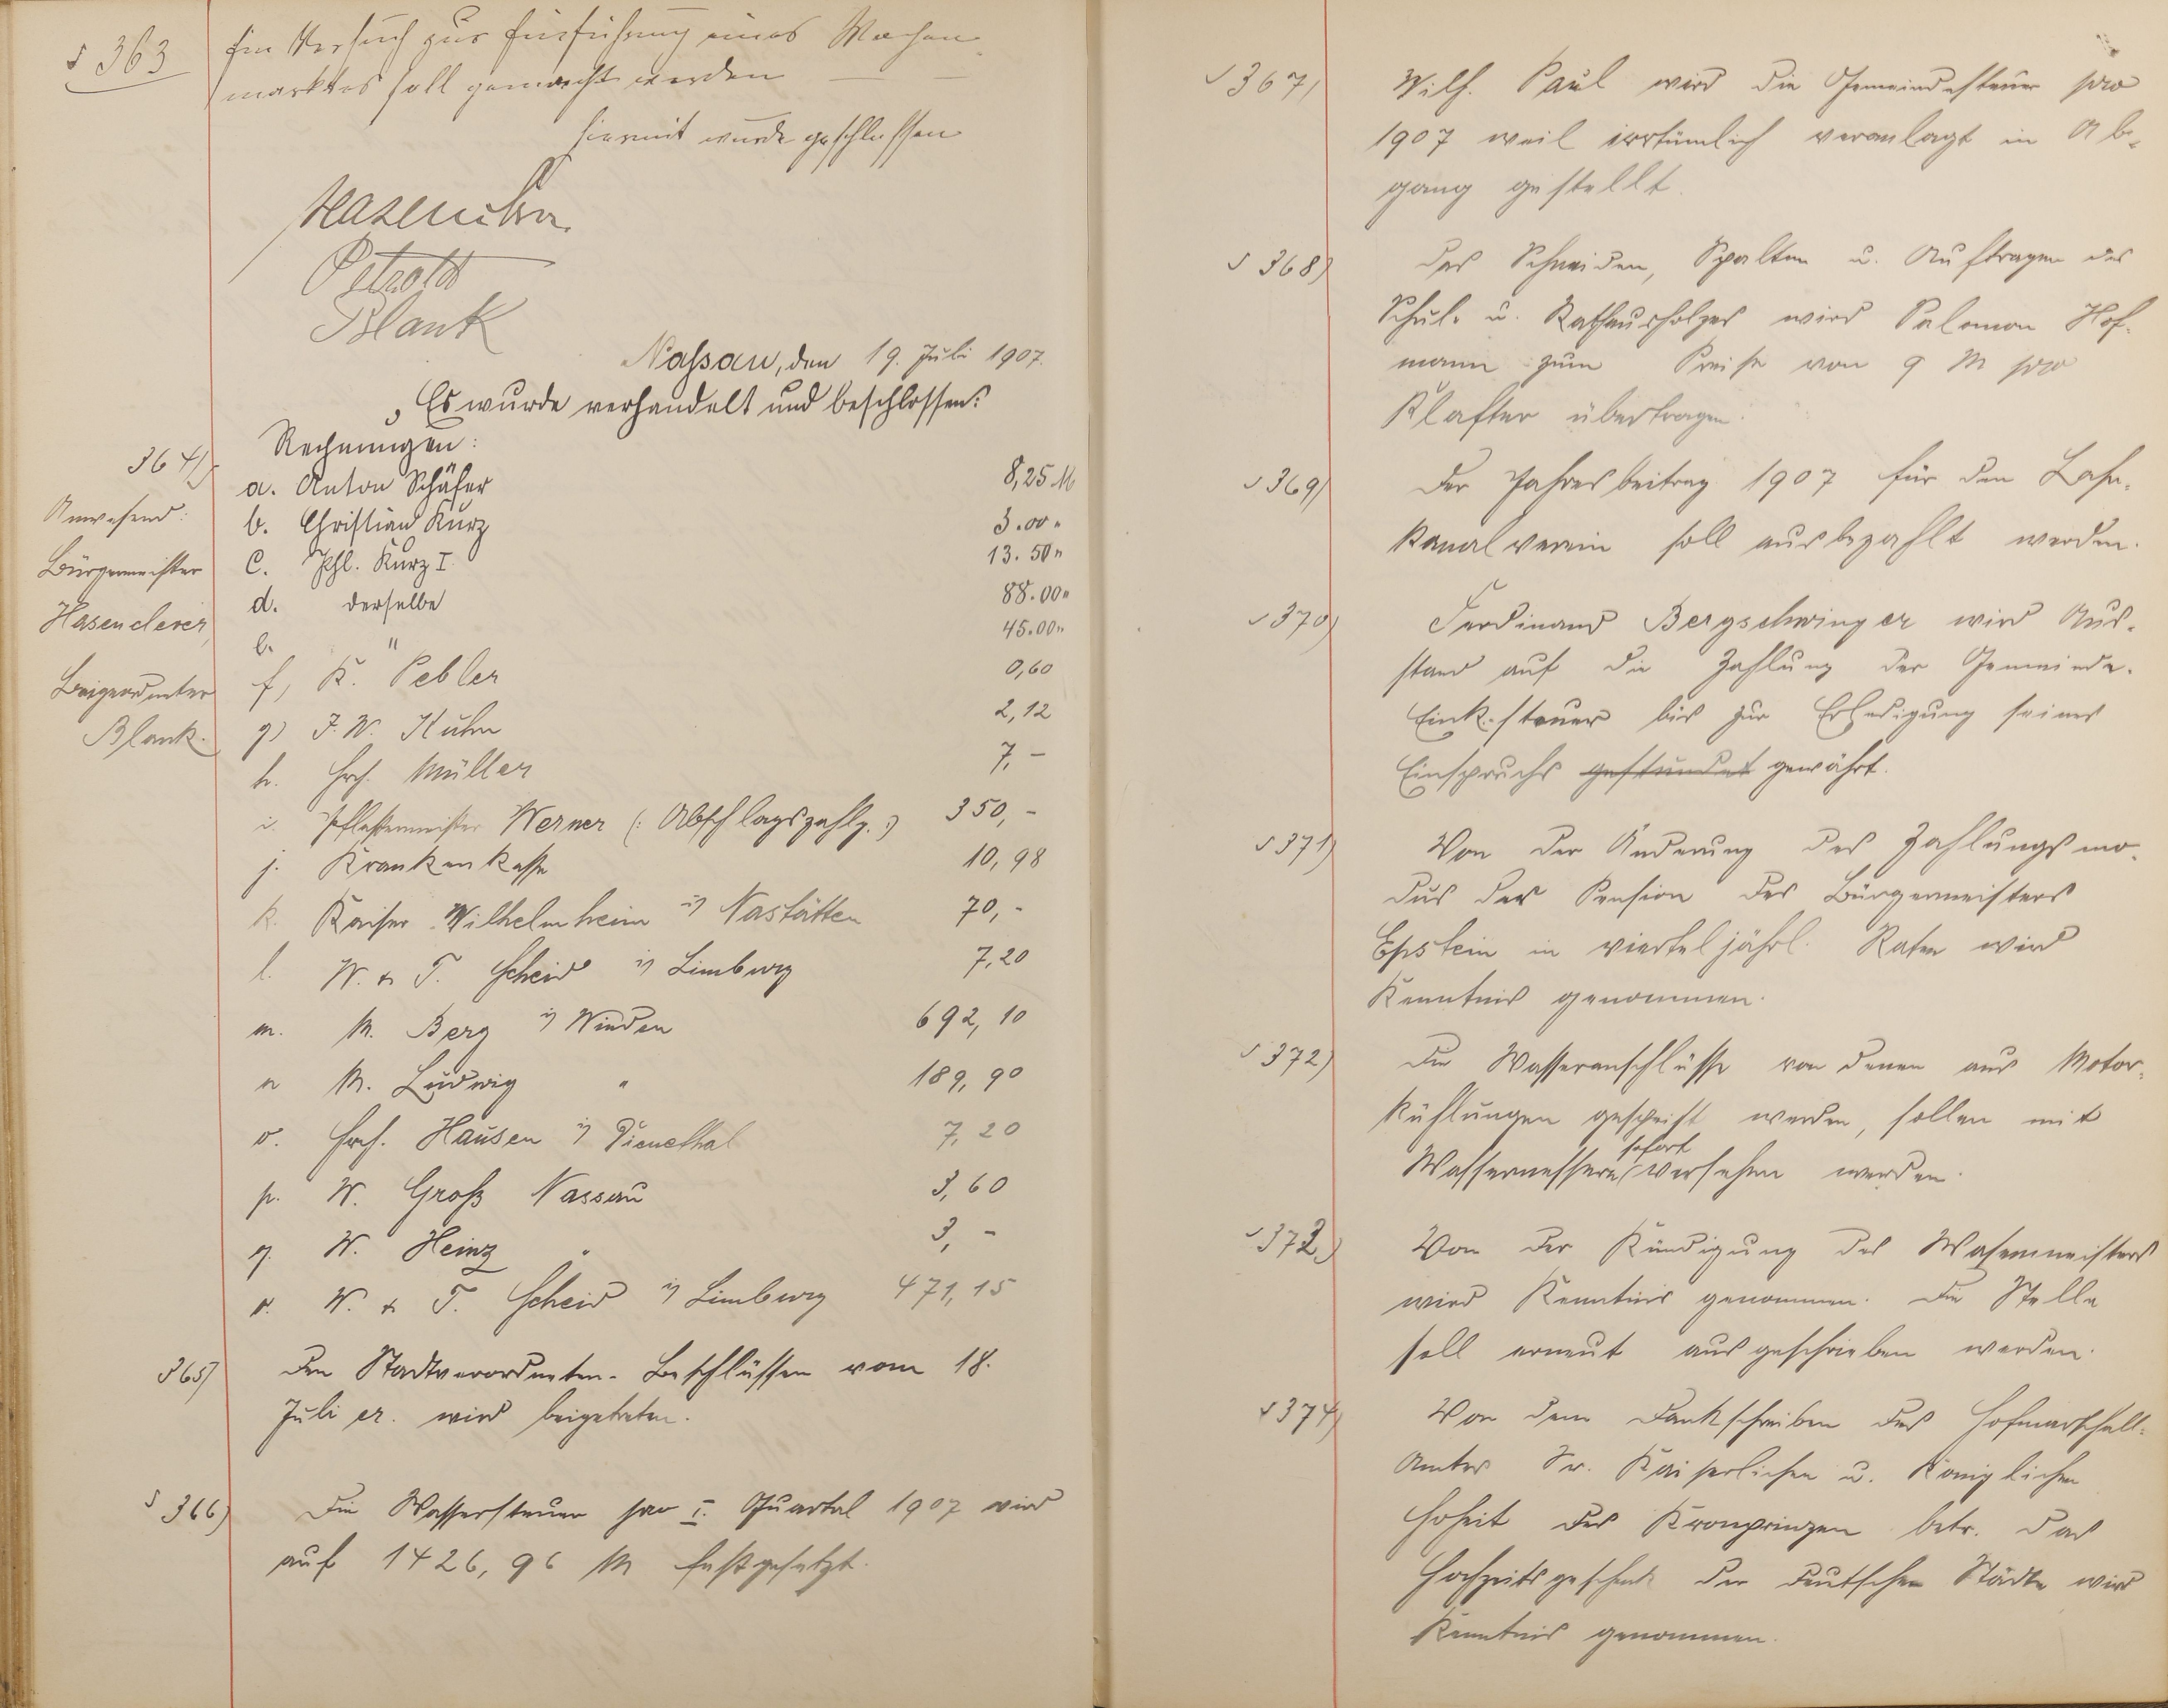 § 363
Ein Versuch zur Einführung eines Wochen-
marktes soll gemacht werden
hiermit wurde geschlossen
Hasenclever
Petzold
Blank
Nassau, den 19. Juli 1907.
Es wurde verhandelt und beschlossen:
364)
Rechnungen:
Anwesend:
Bürgermeister
Hasenclever,
Beigeordneter
Blank.
a. Anton Schäfer 8,25 M
b. Christian Kurz 3.00 "
c. Phl. Kurz I. 13.50 "
d. derselbe 88.00 "
e. " 45.00 "
f) K. Pebler 0,60
g) J. W. Kuhn 2,12
h. Hrch. Müller 7,-
i. Pflastermeister Werner (: Abschlagszahlg. :) 350,-
j. Krankenkasse 10,98
k. Kaiser Wilhelmheim i/ Nastätten 70,-
l. W. & T. Scheid i/ Limburg 7,20
m. M. Berg i/ Winden 692,10
n M. Ludwig " 189,90
o. Hrch. Hausen i/ Dienethal 7,20
p. W. Groß Nassau 3,60
q. W. Heinz " 3,-
r. W. & T. Scheid i/ Limburg 471,15
365)
Den Stadtverordneten-Beschlüssen vom 18.
Juli cr. wird beigetreten.
§ 366)
Die Wassersteuer pro I. Quartal 1907 wird
auf 1426,96 M festgesetzt.
§ 367)
Wilh. Paul wird die Gemeindesteuer pro
1907 weil irrtümlich veranlagt in Ab-
gang gestellt.
§ 368)
Das Schneiden, Spalten u. Auftragen des
Schul- u. Rathausholzes wird Salomon Hof-
mann zum Preise von 9 M pro
Klafter übertragen.
§ 369)
Der Jahresbeitrag 1907 für den Lahn-
kanalverein soll ausbezahlt werden.
§ 370)
Ferdinand Bergschwinger wird Aus-
stand auf die Zahlung der Gemeinde-
Eink.steuer bis zur Erledigung seines
Einspruchs gestundet gewährt.
§ 371)
Von der Änderung des Zahlungsmo-
dus der Pension des Bürgermeisters
Epstein in vierteljährl. Raten wird
Kenntnis genommen.
§ 372)
Die Wasseranschlüsse von denen aus Motor-
kühlungen gespeist werden, sollen mit
Wassermessern sofort versehen werden.
§ 373)
Von der Kündigung des Wasenmeisters
wird Kenntnis genommen. Die Stelle
soll erneut ausgeschrieben werden.
§ 374)
Von dem Dankschreiben des Hofmarschall-
Amtes Sr. Kaiserlichen u. Königlichen
Hoheit des Kronprinzen betr. das
Hochzeitsgeschenk der deutschen Städte wird
Kenntnis genommen.